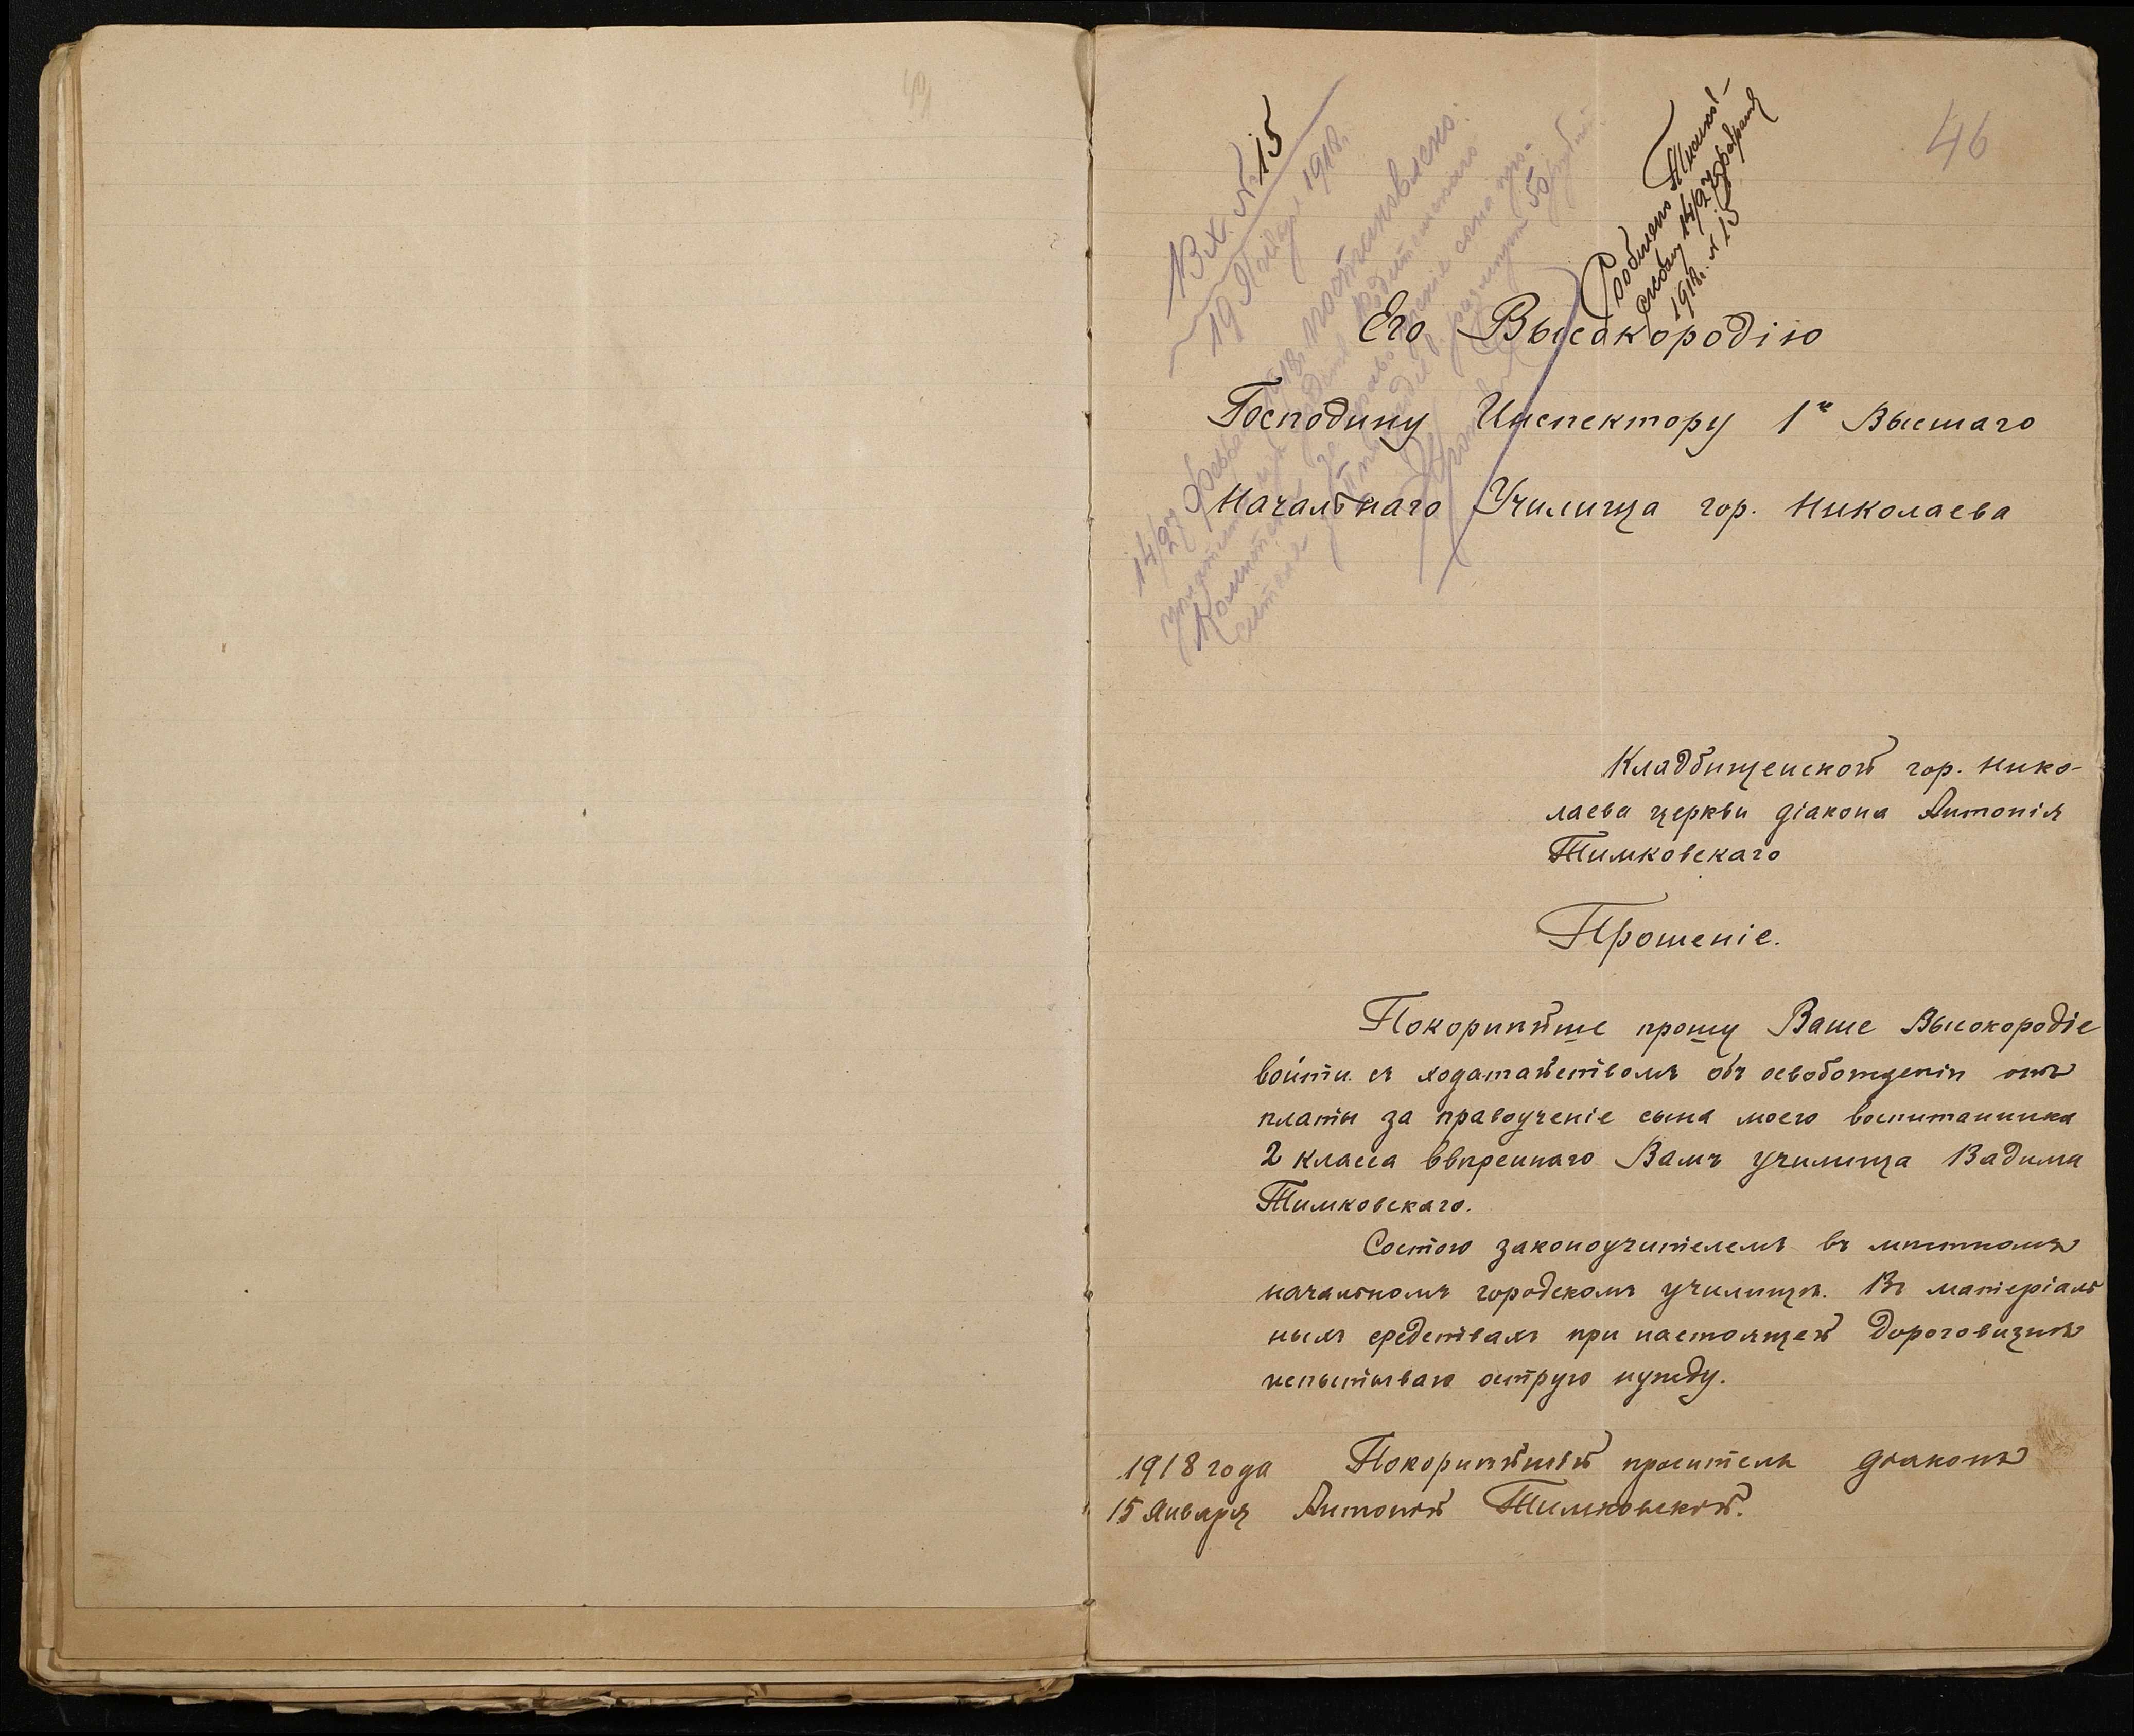 46
Вх. № 15
19 Января 1918 г.
14/27 1918 постановлено
50 рублей
Сообщено Тимков-
скому 14/27 февраля
1918 г. № 15
Его Высокородію
Господину Инспектору 1го Высшаго
Начальнаго Училища гор. Николаева
Кладбищенской гор. Нико-
лаева церкви діакона Антонія
Тимковскаго
Прошеніе.
Покорнѣйше прошу Ваше Высокородіе
войти съ ходатайствомъ объ освобожденіи отъ
платы за правоученіе сына моего воспитанника
2 класса ввѣреннаго Вамъ училища Вадима
Тимковскаго.
Состою законоучителемъ въ мѣстномъ
начальномъ городскомъ училищѣ. Въ матеріаль
ныхъ средствахъ при настоящей дороговизнѣ
испытываю острую нужду.
1918 года Покорнѣйшій проситель діаконъ
15 Января Антоній Тимковскій.